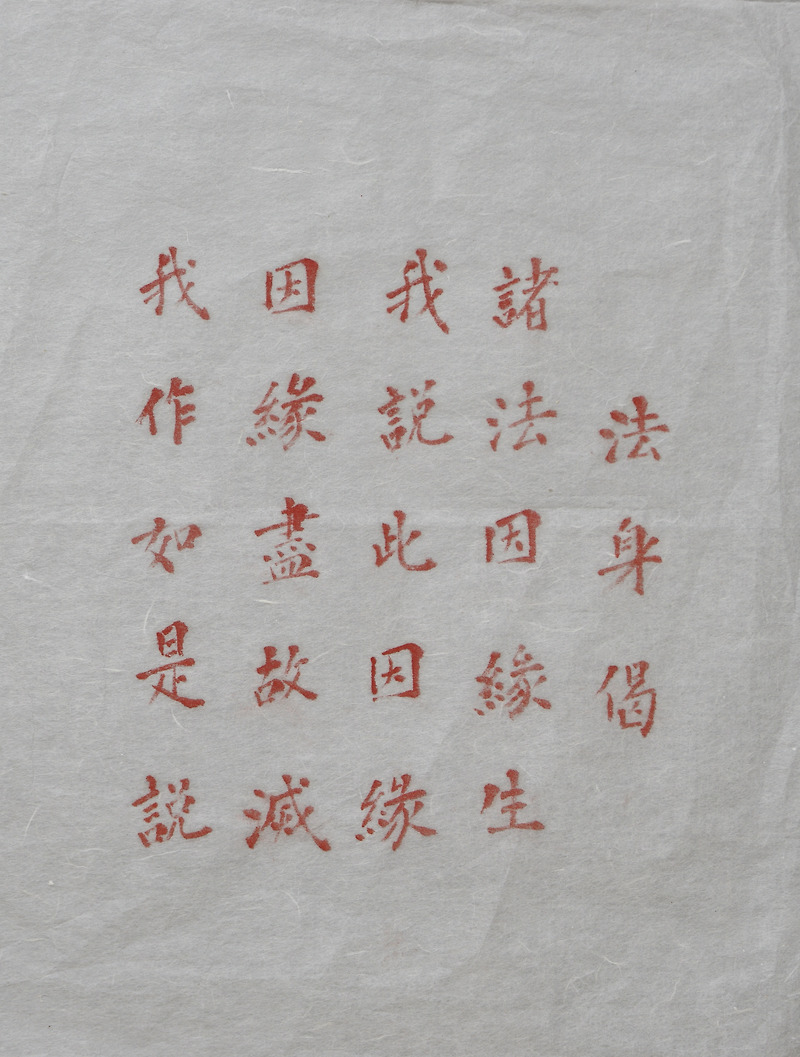 法身偈
諸法因緣生
我說此因緣
因緣盡故滅
我作如是說